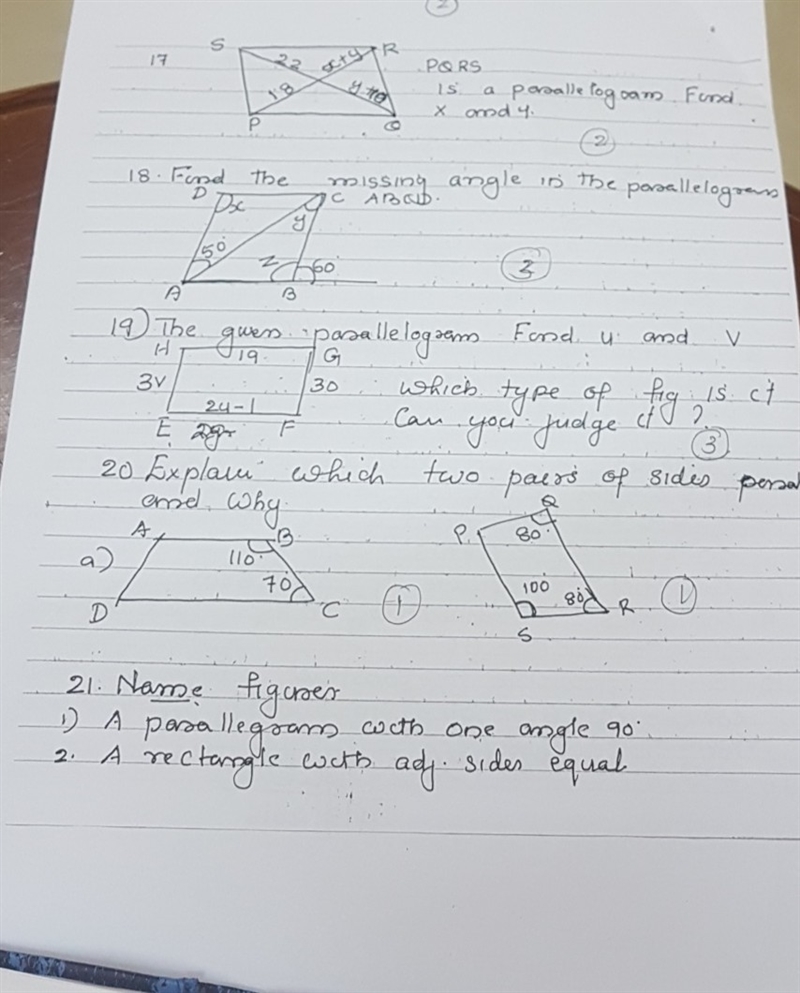 2
S R
17 22 x+y PQRS
18 y+10 Is a parallelogram Find
P Q x and y.
2
18. Find the missing angle in the parallelogram
D x C ABCD.
y
50° z 60° 3
A B
19) The given parallelogram Find u and v
H 19 G
3v 30 which type of fig is it
2u-1
E F Can you judge it ?
3
20 Explain which two pairs of sides paral
and why
A B P Q
a) 110° 80°
70° 100° 80°
D C 1 S R 1
21. Name figures
1) A parallegram with one angle 90°
2. A rectangle with adj. sides equal